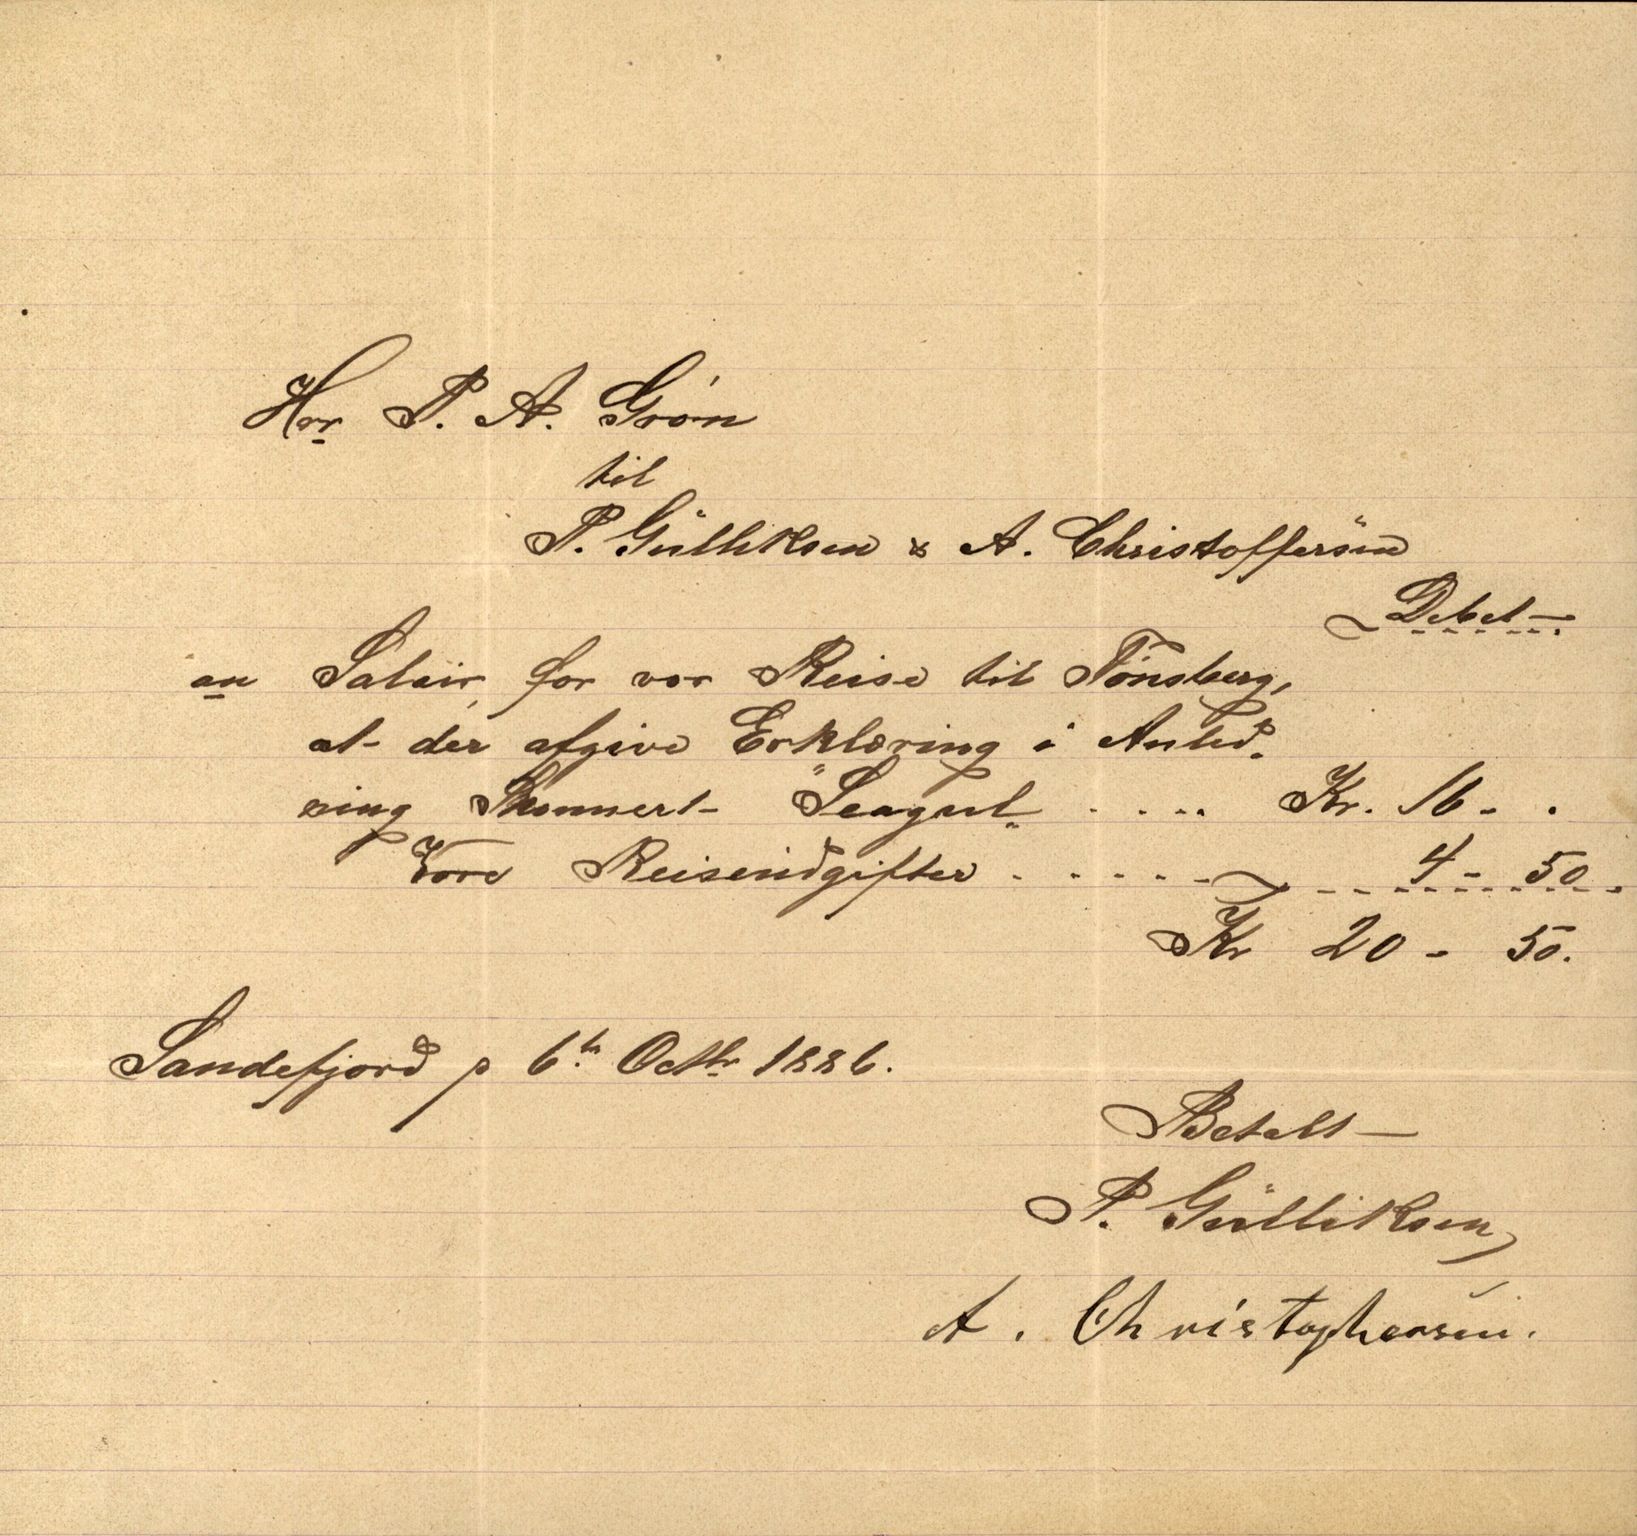 Hrr P. A. Grøn
til
P. Gulliksen & A. Christoffersen
Debet
an Salair for vor Reise til Tønsberg,
at der afgive Erklæring i Anled.
ning Skonnert "Seagul" .... Kr. 16 - .
Vore Reiseudgifter ..... 4 - 50.
Kr 20 - 50.
Sandefjord p 6te Octbr 1886.
Betalt
P. Gulliksen
A. Christophersen.